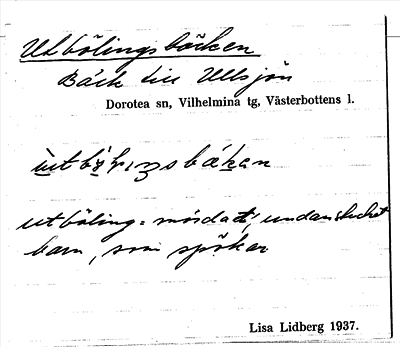 Utbölingsbäcken
Bäck till Ullsjön
Dorotea sn, Vilhelmina tg, Västerbottens l.
utböling = mördat, undanstucket
barn, som spökar
Lisa Lidberg 1937.